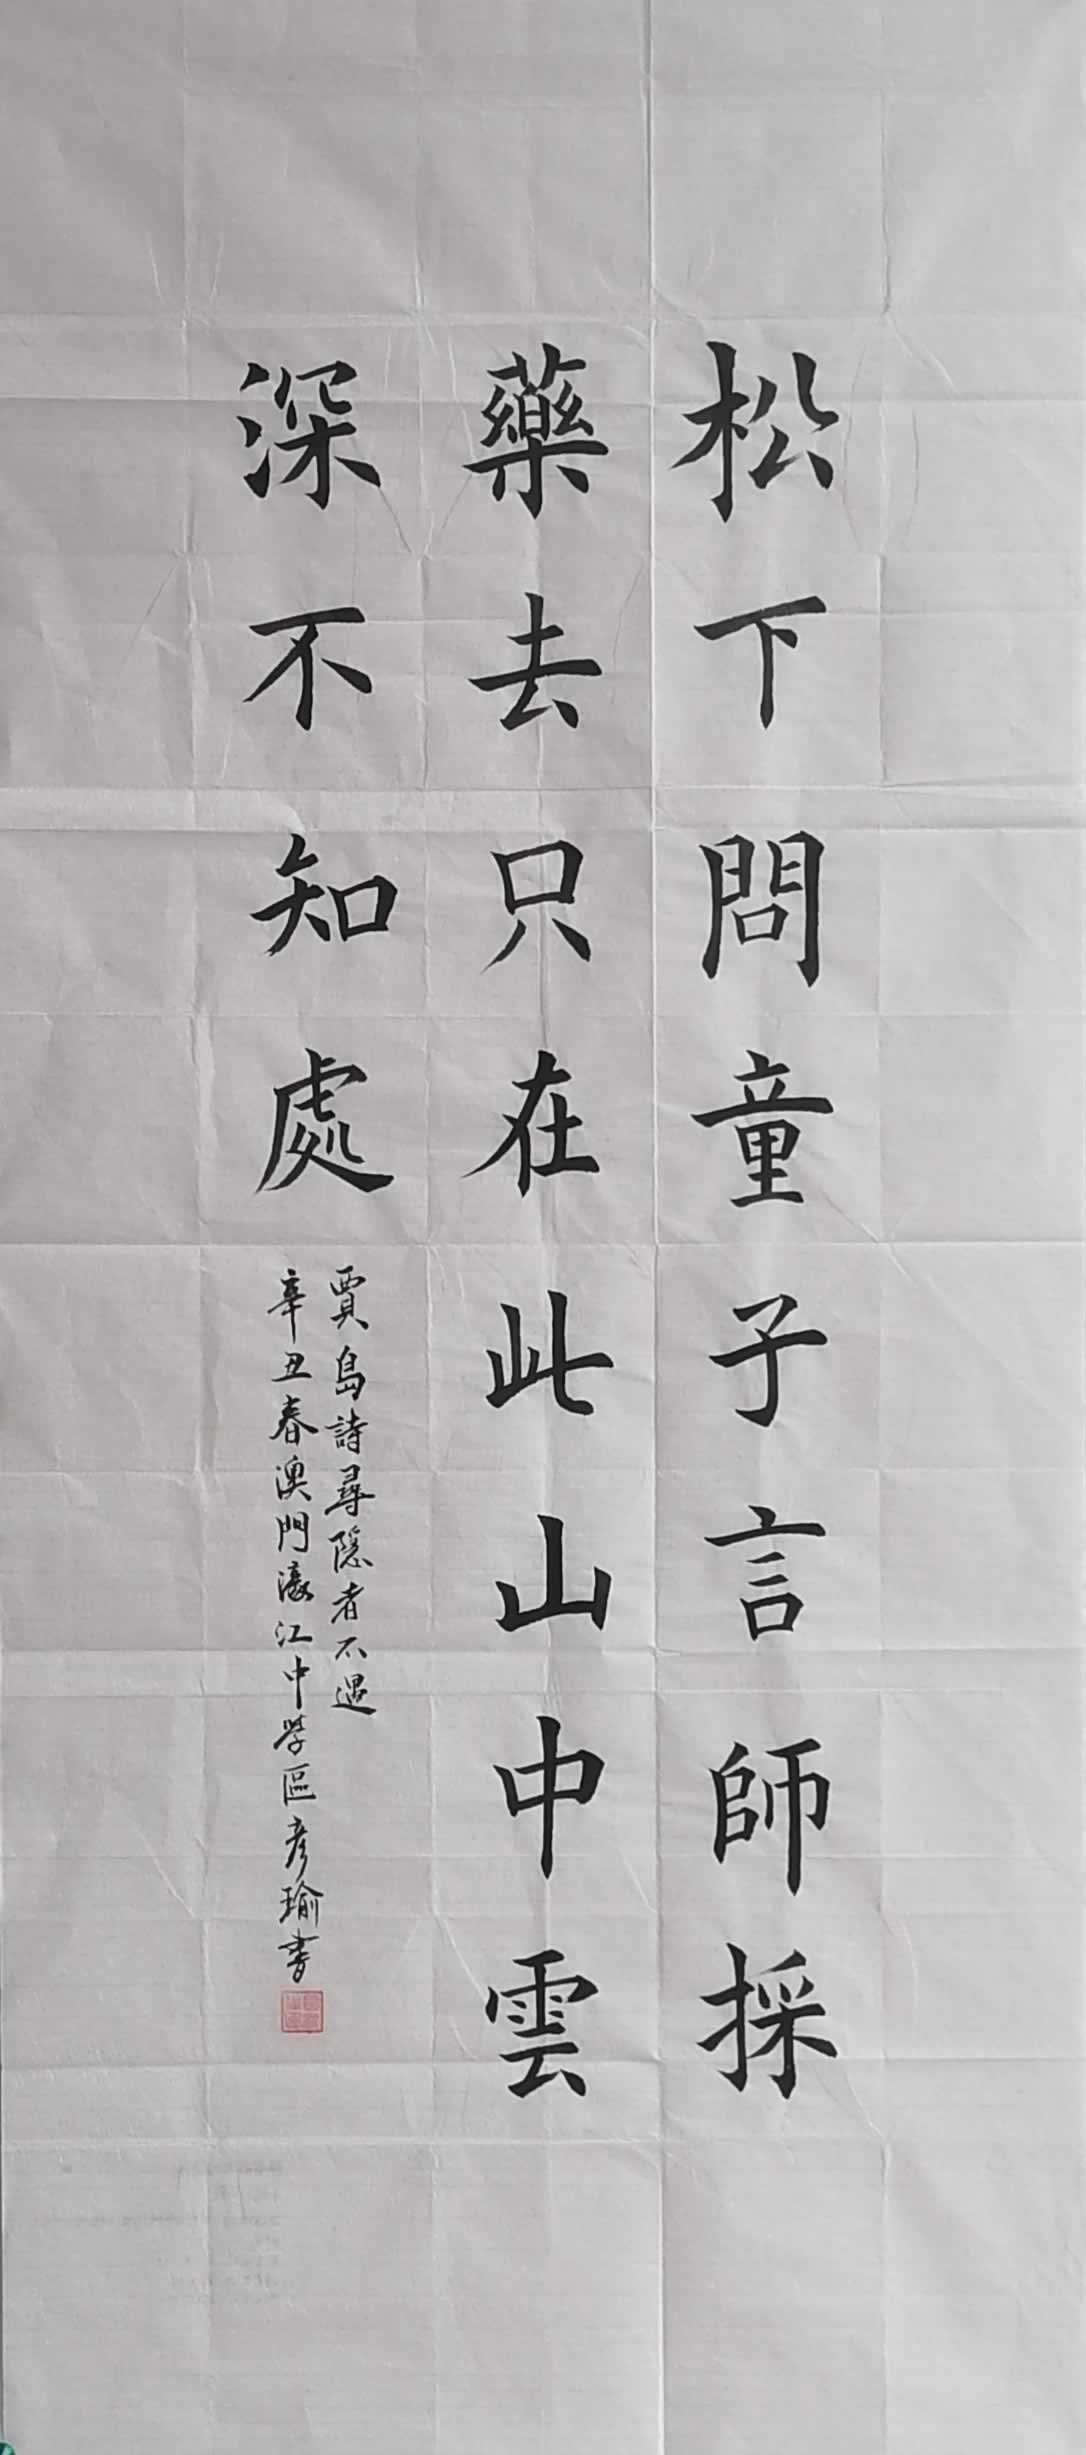 松下問童子言師採
藥去只在此山中雲
深不知處
賈島詩尋隱者不遇
辛丑春澳門濠江中学區彦瑜書